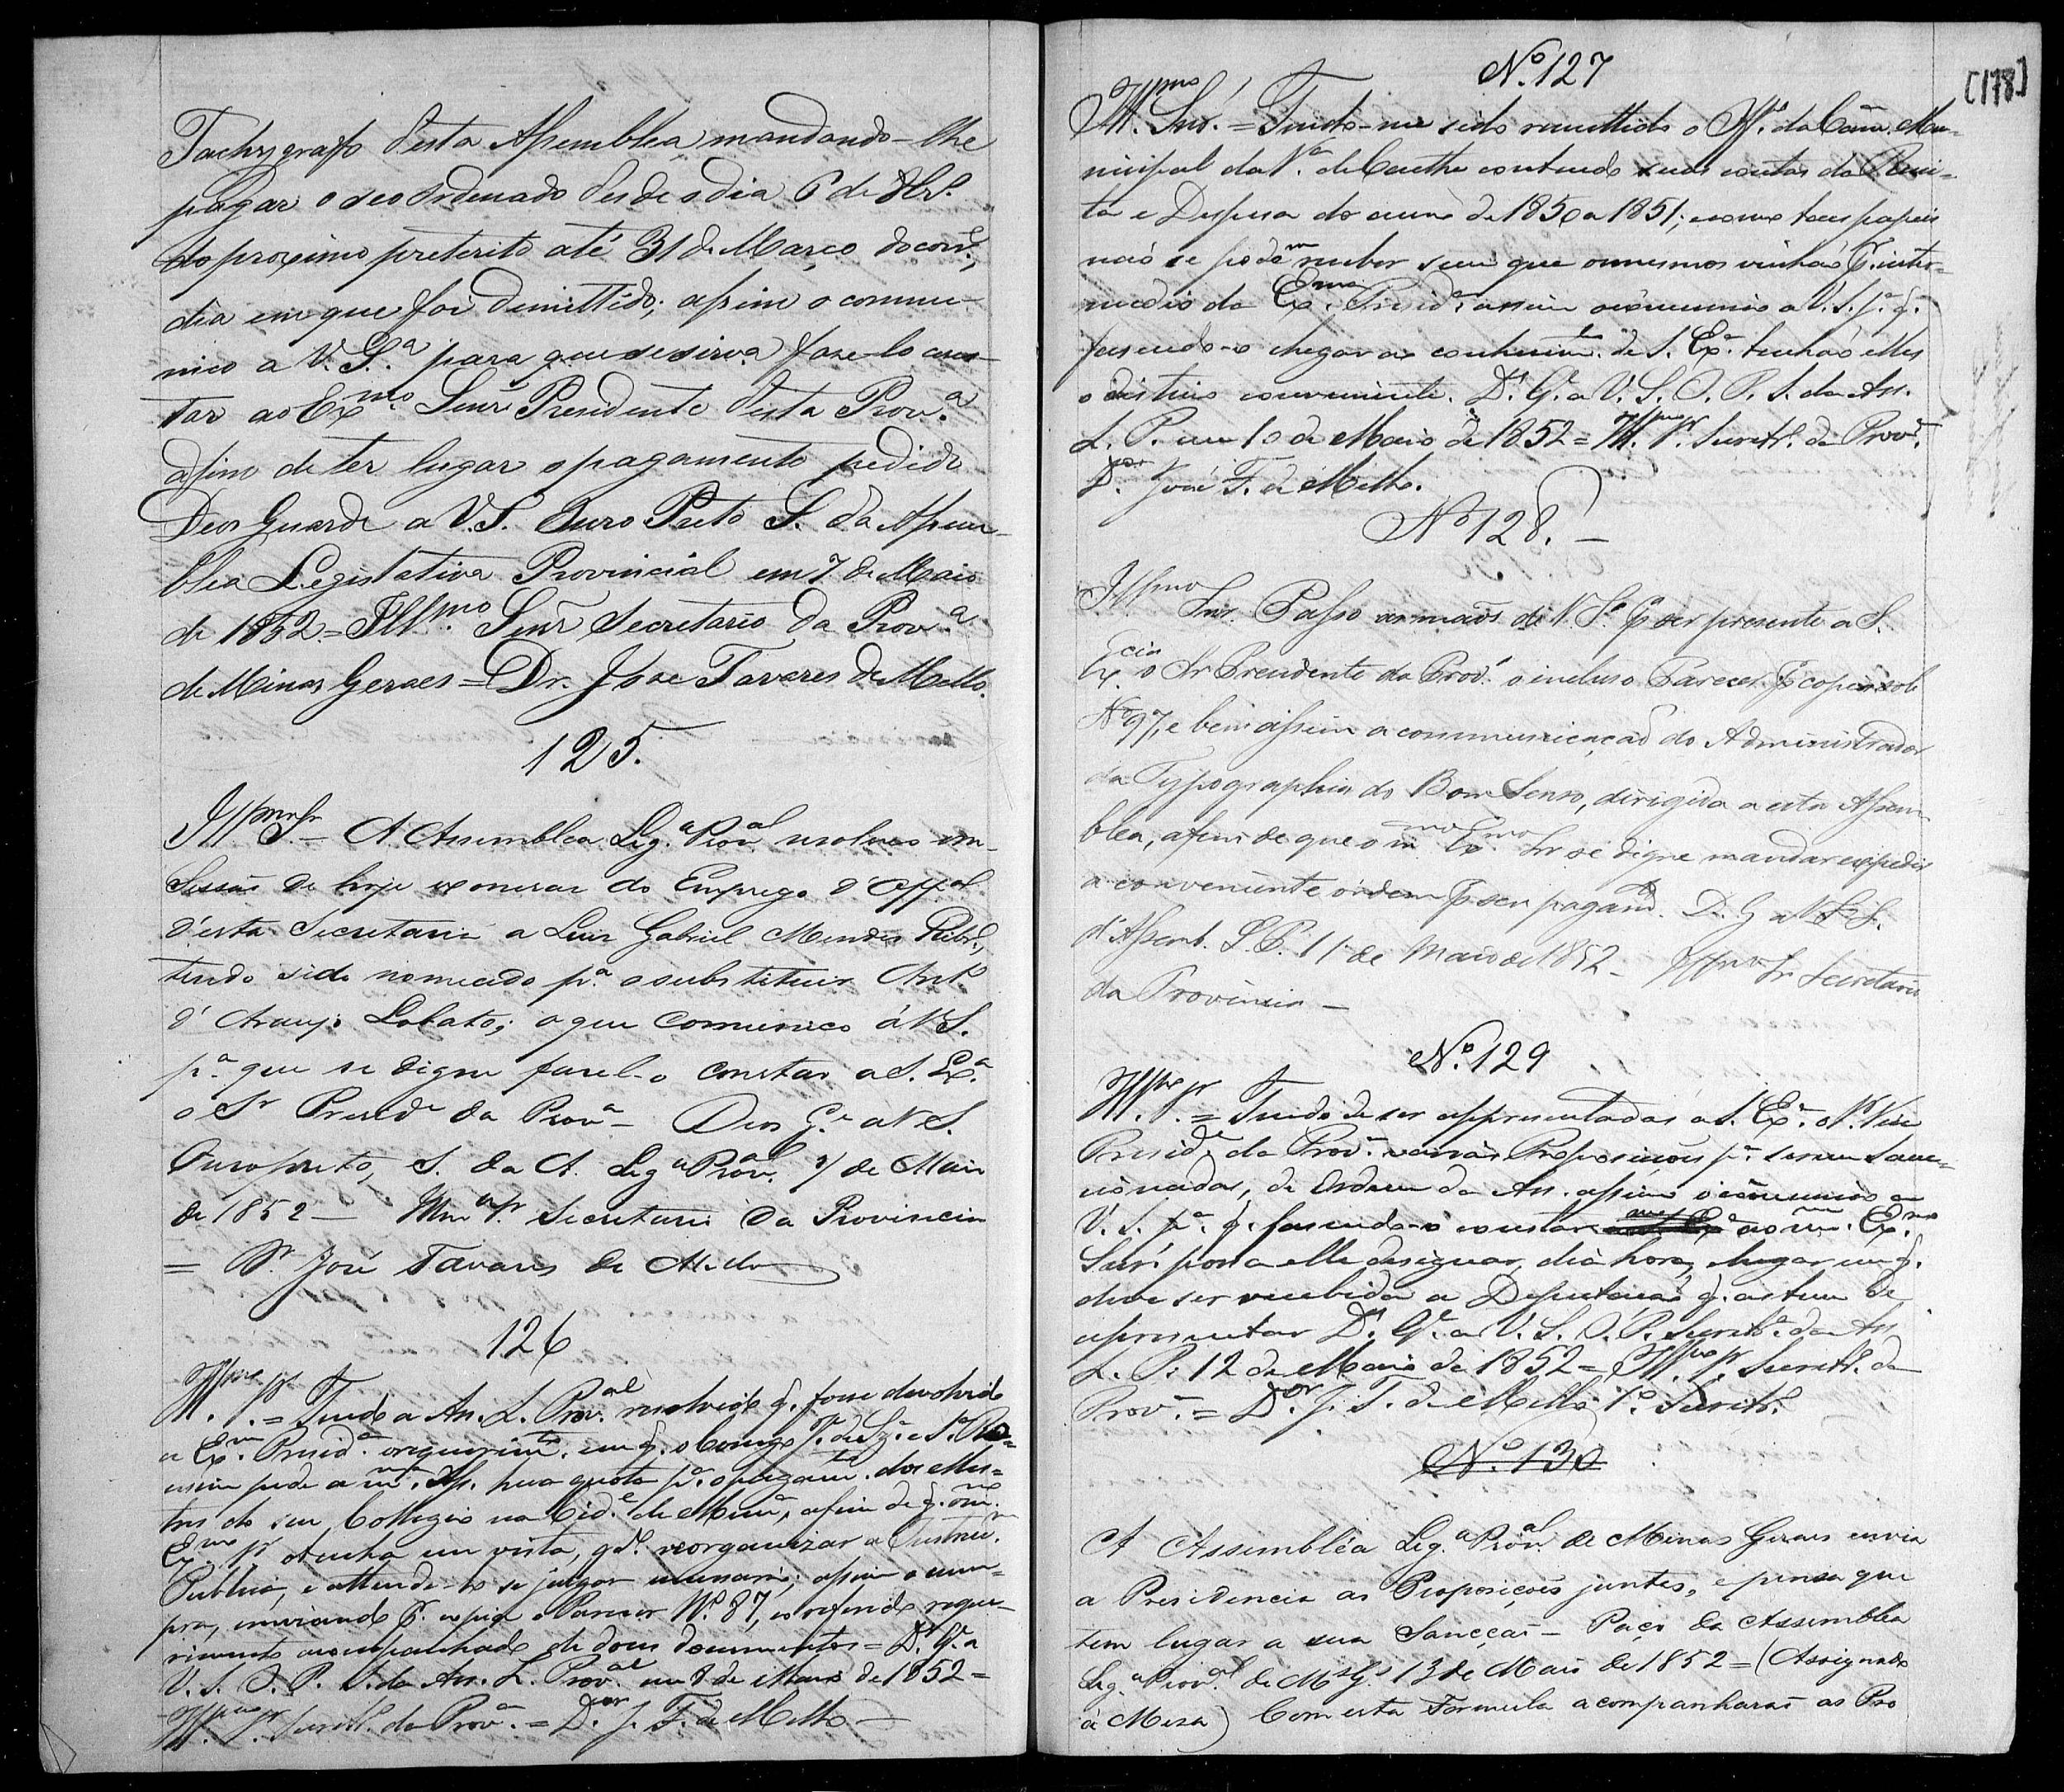 Tachygrafo desta Assemblea mandando-lhe
pagar o seo ordenado desde o dia 6 de 8br.º
do proximo preterito até 31 de Março do corr.e,
dia em que foi demittido; assim o commu-
nico a V. S.ª para que se sirva faze-lo cons-
tar ao Ex.mo Senr Presidente desta Prov.a
afim de ter lugar o pagamento pedido
Deos Guarde a V. S. Ouro Preto S. da Assem-
blea Legislativa Provincial em 7 de Maio
de 1852 = Ill.mo Senr Secretario da Prov.a
de Minas Geraes = Dr. Jose Tavares de Mello.
125.
Illmo Sr. — A Assemblea Leg.a Prov.al resolveo em
Sessão de hoje exonerar do Emprego d'Off.al
d'esta Secretaria a Luis Gabriel Mendes Ribr.º,
tendo sido nomeado p.a o substituir Ant.º
d'Araujo Lobato; o que comunico á V. S.
p.a que se digne fasel-o constar a S. Ex.a
o Sr Presid.e da Prov.a — Deos G.e a V. S.
Ouropreto, S. da A. Leg.a Prov.al 7 de Maio
de 1852 — Illmo Sr. Secretario da Provincia
= Dr. José Tavares de Mello
126
Ill.mo Sr. = Tendo a As. L. Prov.al resolvido q. fosse devolvido
a Ex.ma Presid.a o requerim.to em q. o Conego J.e de Sz.a e S.a Ro-
ussim pede a m.ma As. hua quota p.a o pagam.to dos Mes-
tres do seu Collegio na Cid.e de Mar.na, afim de q. o m.mo
Ex.mo Sr o tenha em vista, q.do reorganizar a Instruc.m
Publica, e attende-lo se julgar necessario; assim o cum-
pro, enviando p.r copia o Parecer N.º 87, e o referido reque-
rimento acompanhado de dous documentos = D.s G.e a
V. S. O. P. S. da As. L. Prov.al em 8 de Maio de 1852 =
Ill.mo Sr. Secret.º da Prov.a = D.or J. T. de Mello —
[178]
N.º 127
Ill.mo Snr. = Tendo-me sido remettido o Off.º da Cam. Mu-
nicipal da V.a de Caethe contendo suas contas da Recei-
ta e Despesa do anno de 1850 a 1851; e como taes papeis
não se podem receber sem que os mesmos vinhão p.r inter-
medio da Ex.ma Presid.a assim o comunico a V. S. p.a q.
fasendo-o chegar ao conhecim.to de S. Ex.a tenhão elles
o distino conveniente. D.s G.e a V. S. O. P. S. da As.
L. P. em 10 de Maio de 1852 = Ill.mo Sr. Secret.º da Prov.a
D.or José T. de Mello.
N.º 128. —
Illmo Snr. Passo as mãos de V. S.a p.a ser presente a S.
Ex.cia o Sr Presidente da Prov.a o incluso Parecer p.r copia sob
Nº 97, e bem assim a communicação do Administrador
da Typographia do Bom Senso, dirigida a esta Assem
blea, afim de que o m.mo Ex.mo Sr se digne mandar expedir
a conveniente ordem p.a seu pagam.to D. G. a V. S. S.
d'Assemb. L. P. 11 de Maio de 1852 — Illmo Sr Secretario
da Provincia —
N.º 129
Ill.mo Sr. = Tendo de ser appresentadas a S. Ex.a o Sr. Vice
Presid.e da Prov.a varias Proposições p.a serem sanc-
cionadas, de Ordem da As. assim o comunico a
V. S. p.a q. fasendo-o constar ao m.mo Ex.mo
Snr. possa elle designar dia hora, e lugar em q.
deve ser recebida a Deputação q. as tem de
apresentar D.s G.e a V. S. O. P. Secret.ª da As
L. P. 12 de Maio de 1852 = Ill.mo Sr. Secret.º da
Prov.a = D.or J. T. de Mello 1.º Secret.º
N.º 130
A Assembléa Leg.a Prov.al de Minas Geraes envia
a Presidencia as Proposições juntas, e pensa que
tem lugar a sua Sancção — Paço da Assemblea
Leg.a Prov.al de M.s G.s 13 de Maio de 1852 = (Assignado
a Mesa) Com esta Formula acompanharão as Pro